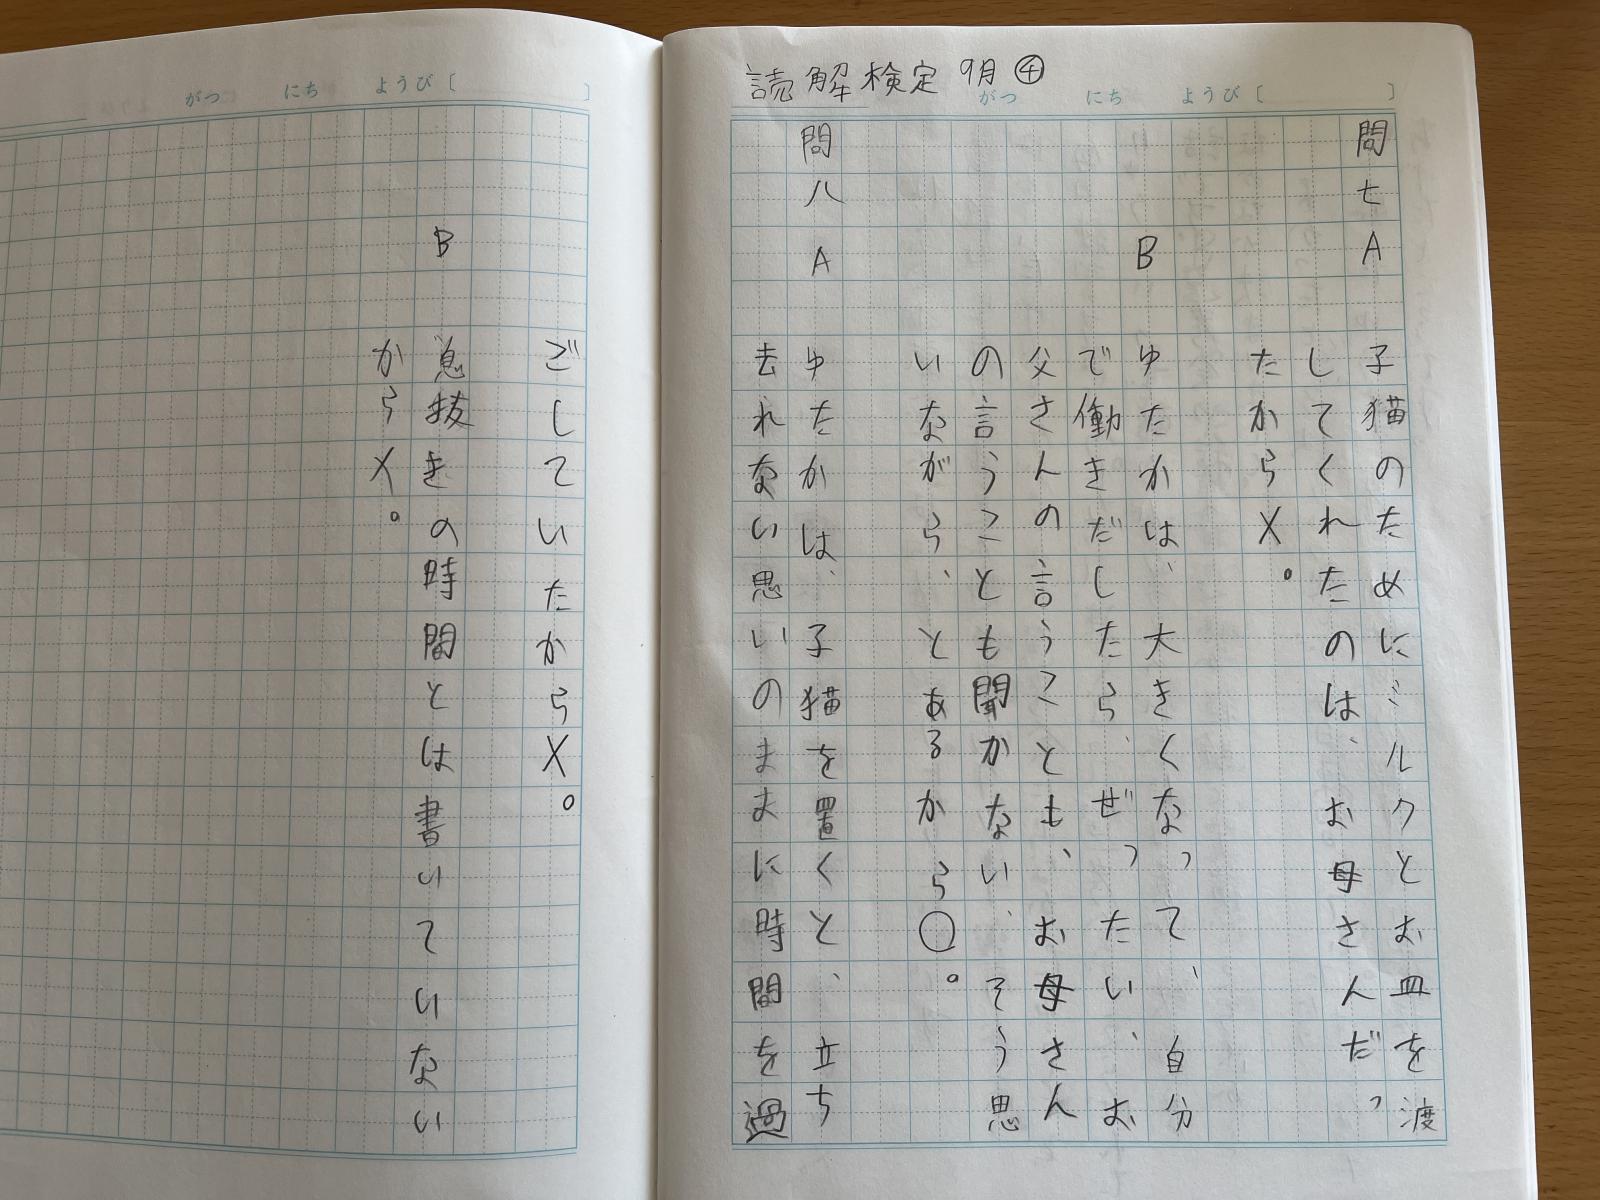 読解検定 9月 ④
がつ にち ようび〔 〕
問七 A 子猫のためにミルクとお皿を渡
してくれたのは、お母さんだっ
たからX。
B ゆたかは、大きくなって、自分
で働きだしたら、ぜったい、お
父さんの言うことも、お母さん
の言うことも聞かない、そう思
いながら、とあるから○。
問八 A ゆたかは、子猫を置くと、立ち
去れない思いのままに時間を過
がつ にち ようび〔 〕
ごしていたからX。
B 息抜きの時間とは書いていない
からX。